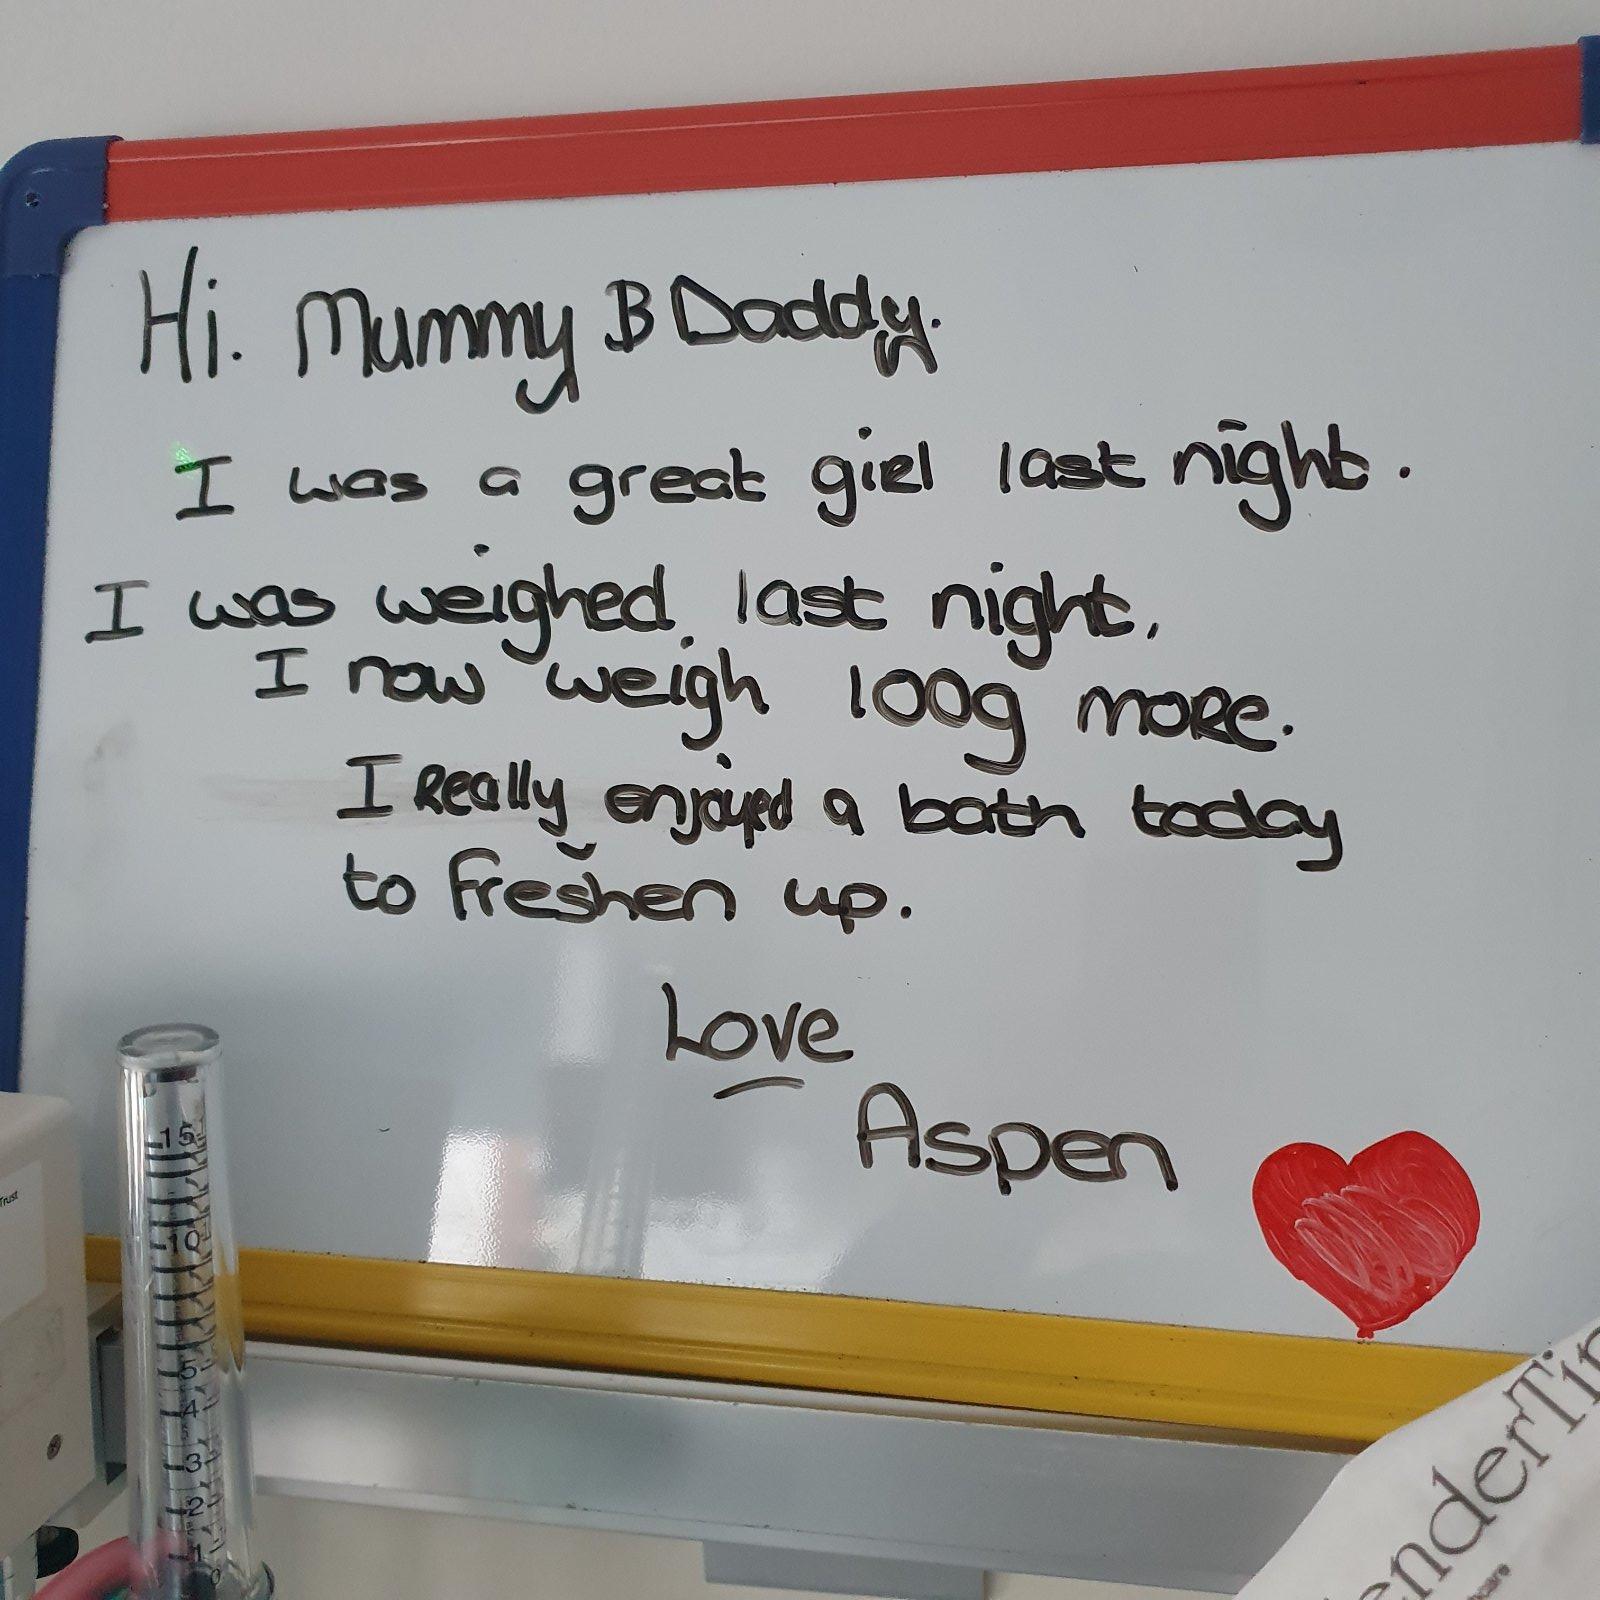 Hi. Mummy & Daddy.
I was a great girl last night.
I was weighed last night.
I now weigh 100g more.
I Really enjoyed a bath today
to freshen up.
Love
Aspen
Trust
15
10
5
4
3
2
1
0